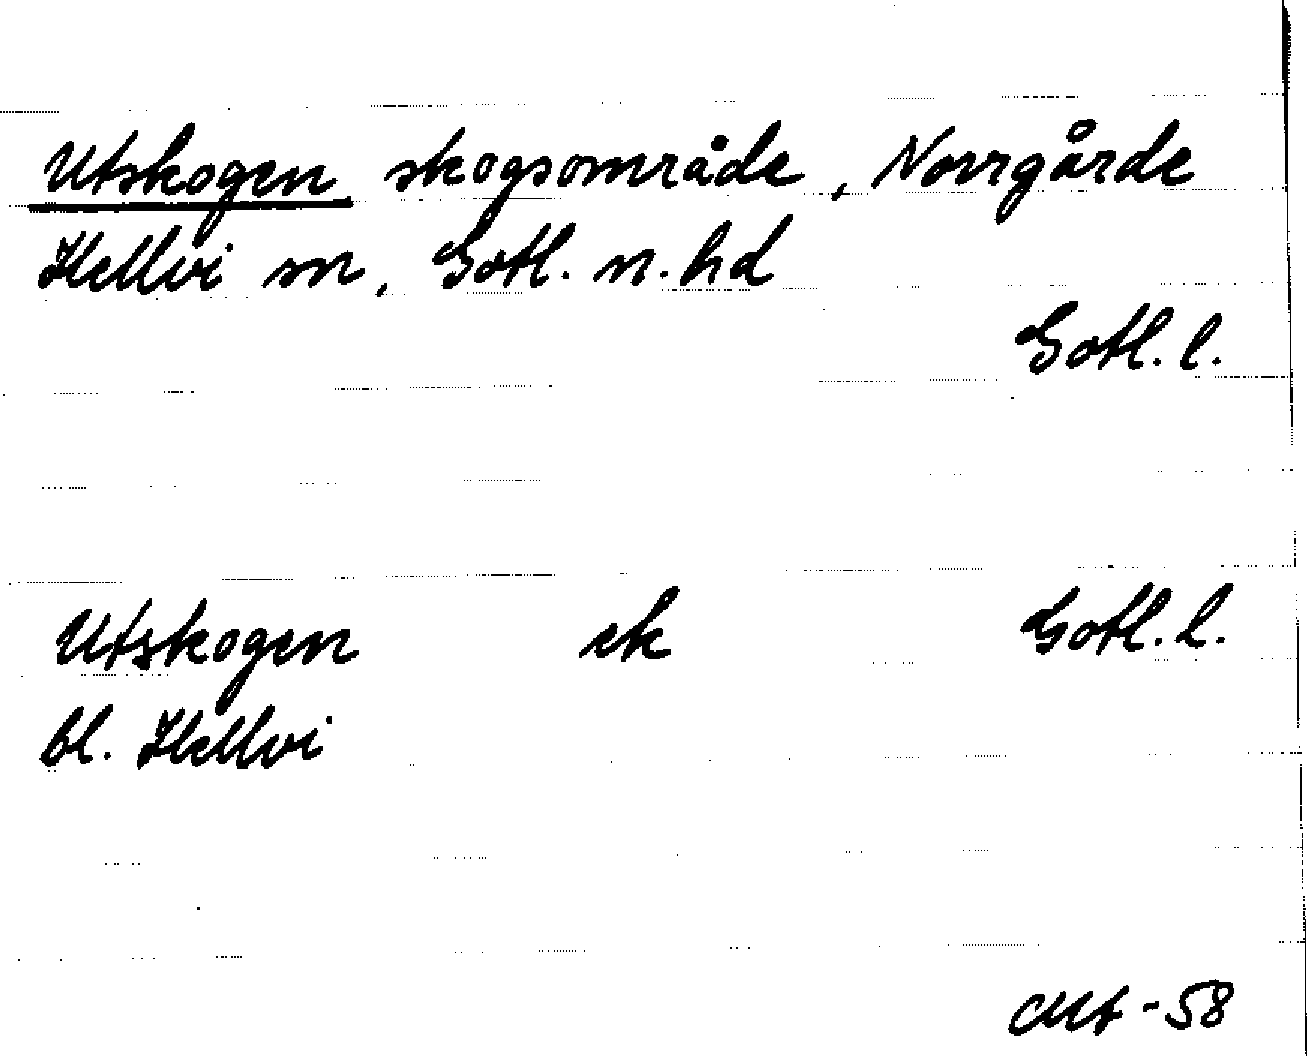 Utskogen skogsområde, Norrgårde
Hellvi sn, Gotl. n. hd
Gotl. l.
Utskogen ek Gotl. l.
bl. Hellvi
-58